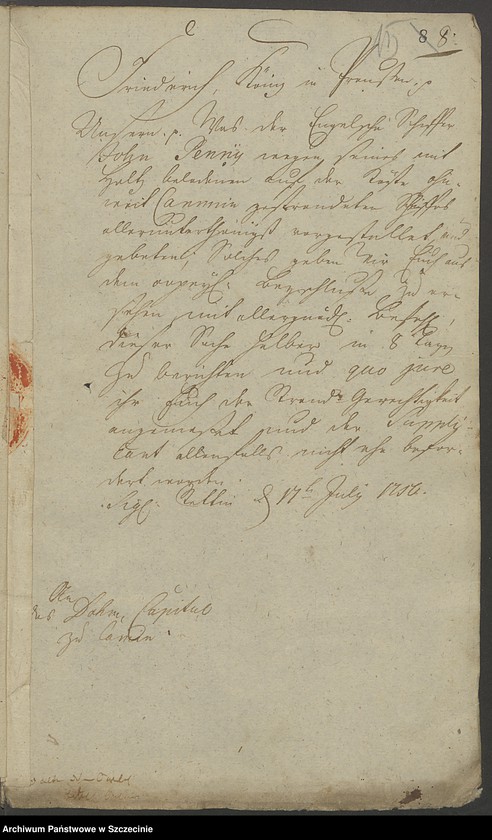 8 8.
Friederich, König in Preußen. p
Unsern p. Was der Engelsche Schiffer
John Penny wegen seines mit
Holtz beladenen auf der Küste ohn-
weit Cammin gestrandeten Schiffes
allerunterthänigst vorgestellet und
gebeten, Solches geben wir Euch aus
dem copeyl. Beyschluße zu er-
sehen mit allergnädl. Befehl,
dieser Sache halber in 8 Tagen
zu berichten und quo jure
ihr Euch der Strand Gerechtigkeit
angemaßet und der Suppli-
cant allenfalls nicht ehe befor-
dert worden.
Sigl. Stettin d 17ten July 1756.
An
das Dohm Capitul
zu Camin
Archiwum Państwowe w Szczecinie